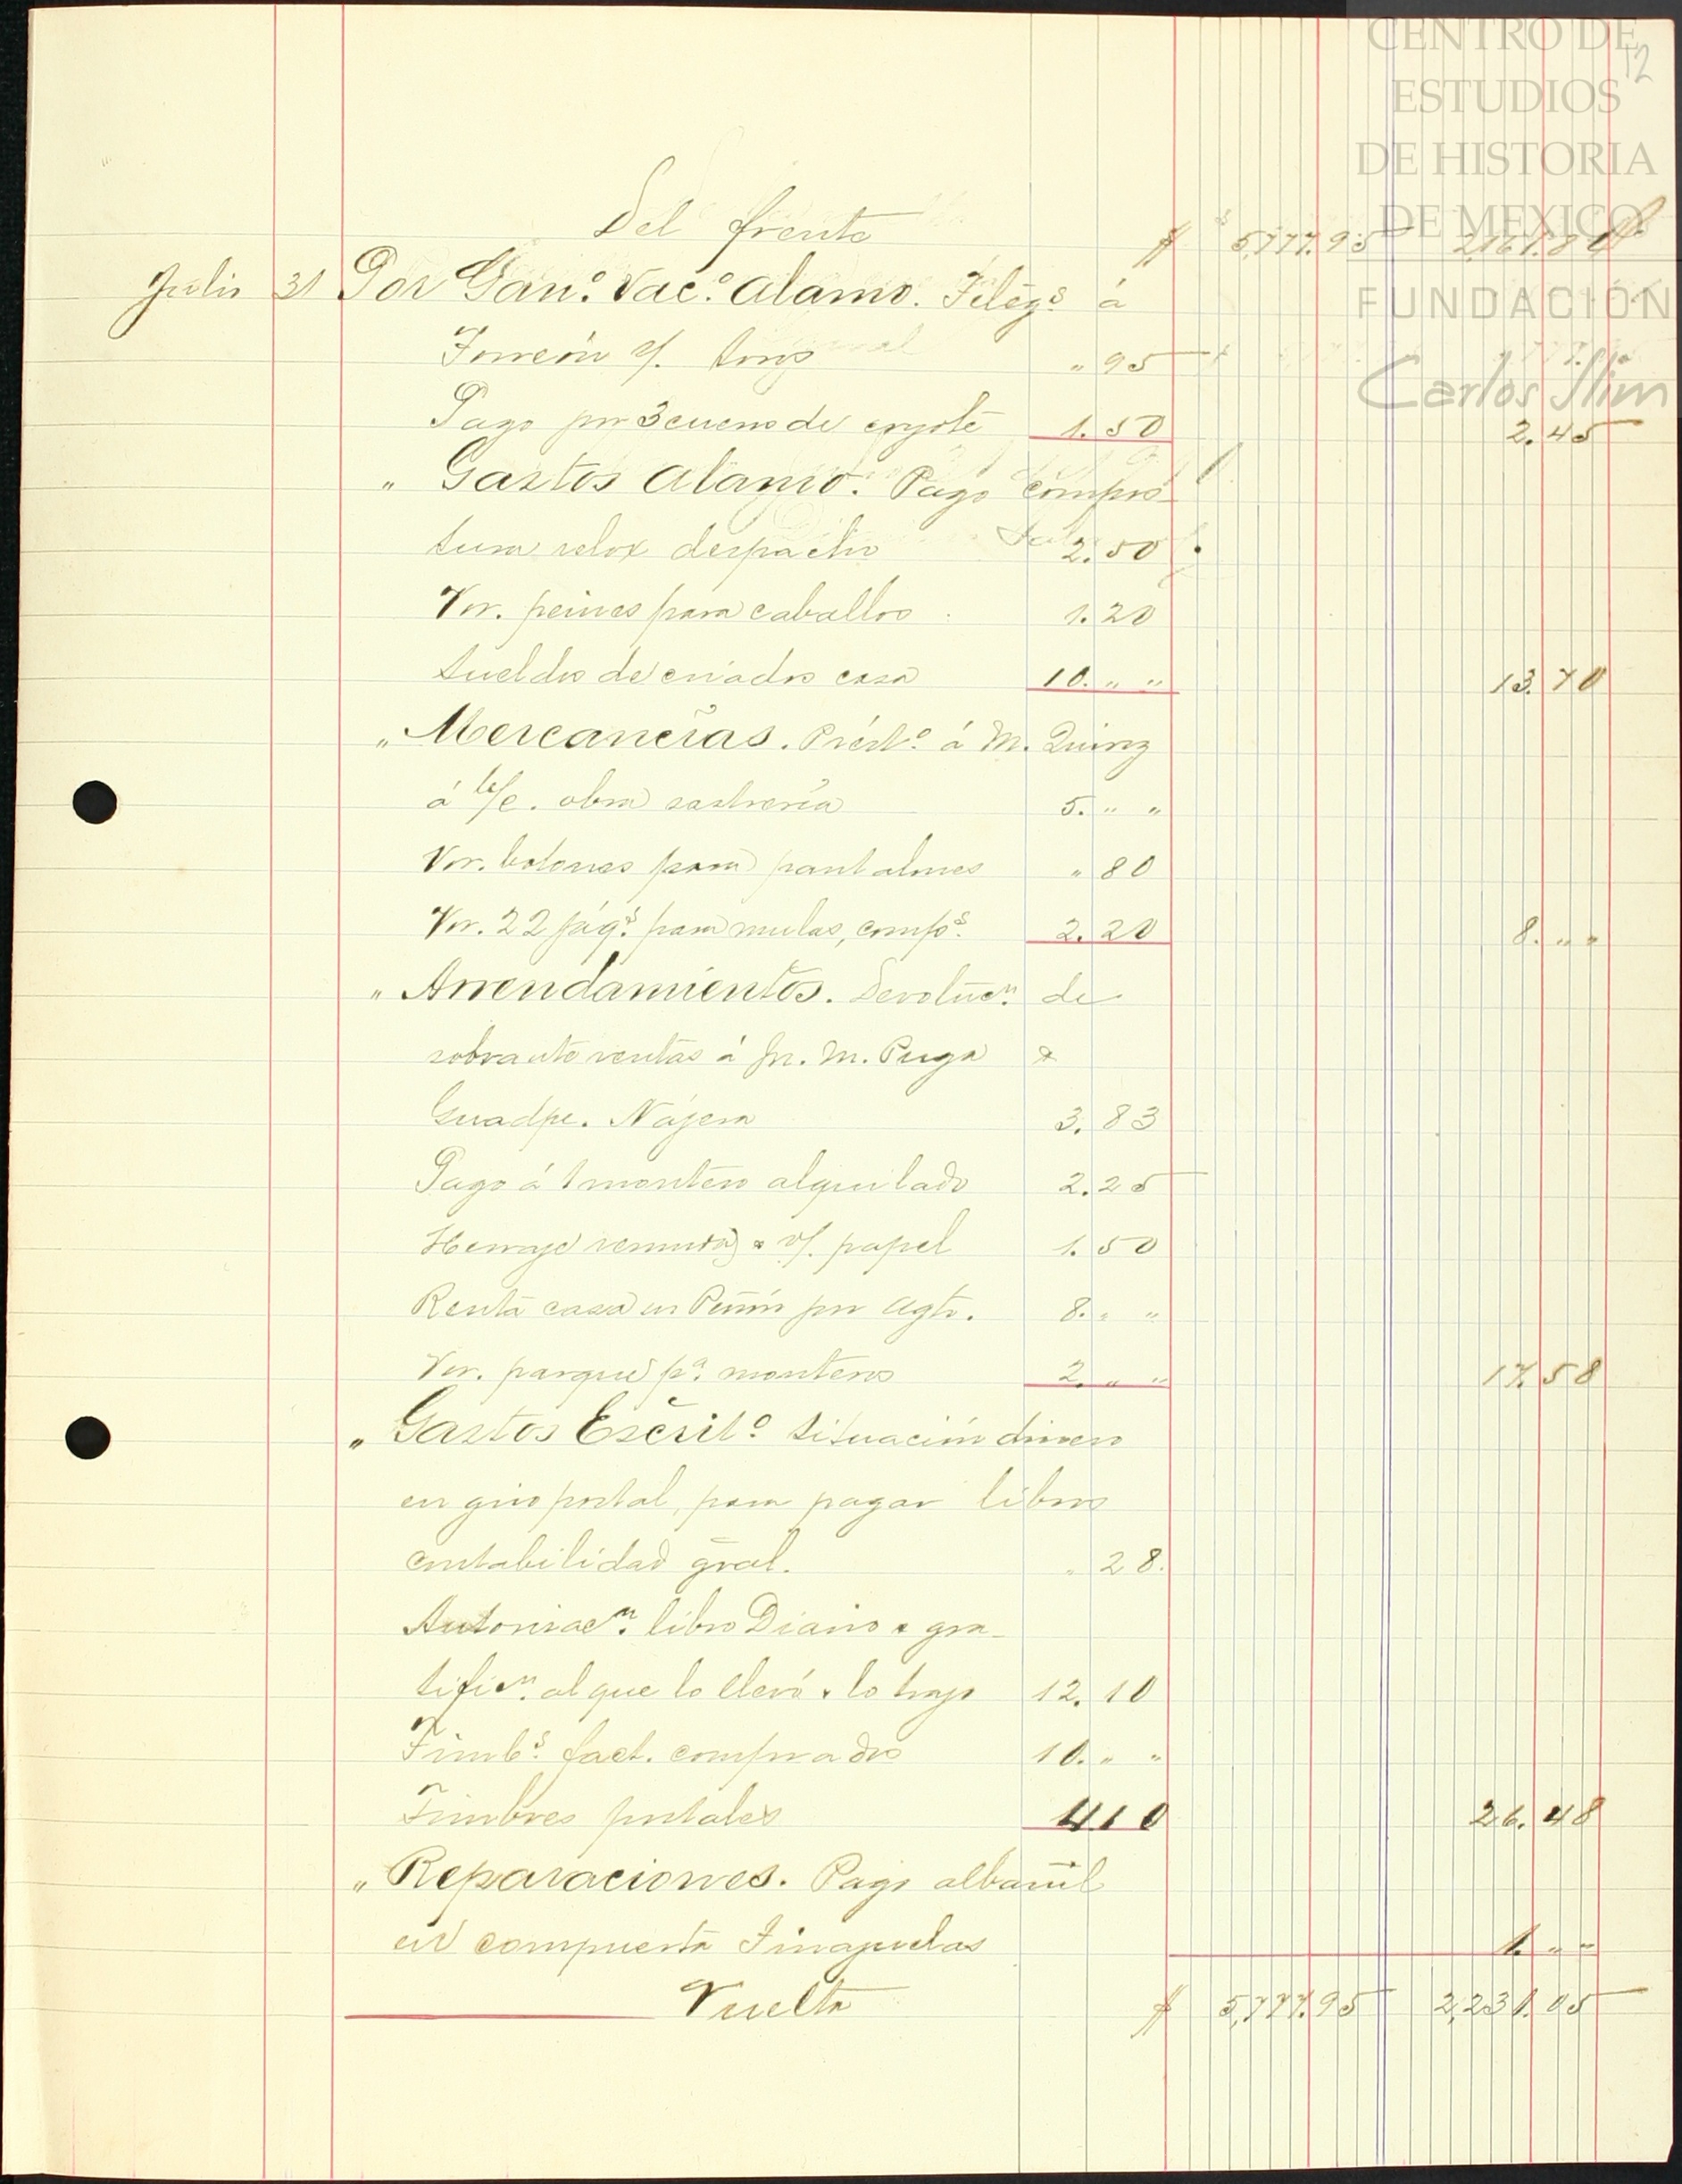 CENTRO DE
ESTUDIOS
DE HISTORIA
DE MEXICO
FUNDACIÓN
Carlos Slim
12
Del frente $ 5,777.95 2,161.84
Julio 31 Por Gan.º Vac.º Alamo. Telégs á
Torreón s/. toros " 95
Pago por 3 cueros de coyote 1.50 2.45
" Gastos Alamo. Pago compos-
tura relox despacho 2.50
Vor. peines para caballos 1.20
Sueldos de criados casa 10. " " 13.70
" Mercancías. Prést.º á M. Quiroz
á c/c. obra sastrería 5. " "
Vor. botones para pantalones " 80
Vor. 22 jáqs para mulas, comps. 2.20 8. " "
" Arrendamientos. Devolucn. de
sobrante rentas á M. Puga &
Guadpe. Nájera 3.83
Pago á 1 montero alquilado 2.25
Herraje remuda & v/. papel 1.50
Renta casa en Peñón por Agto. 8. " "
Vor. parque pa. monteros 2. " " 17.58
" Gastos Escrit.º Situación dinero
en giro postal, para pagar libros
contabilidad gral. " 28.
Autorizacn. libro Diario & gra-
tificn. al que lo llevó & lo trajo 12.10
Timbs. fact. comprados 10. " "
Timbres postales 4.10 26.48
" Reparaciones. Pago albañil
en compuerta Tinajuelas 1. " "
Vuelta $ 5,777.95 2,231.05